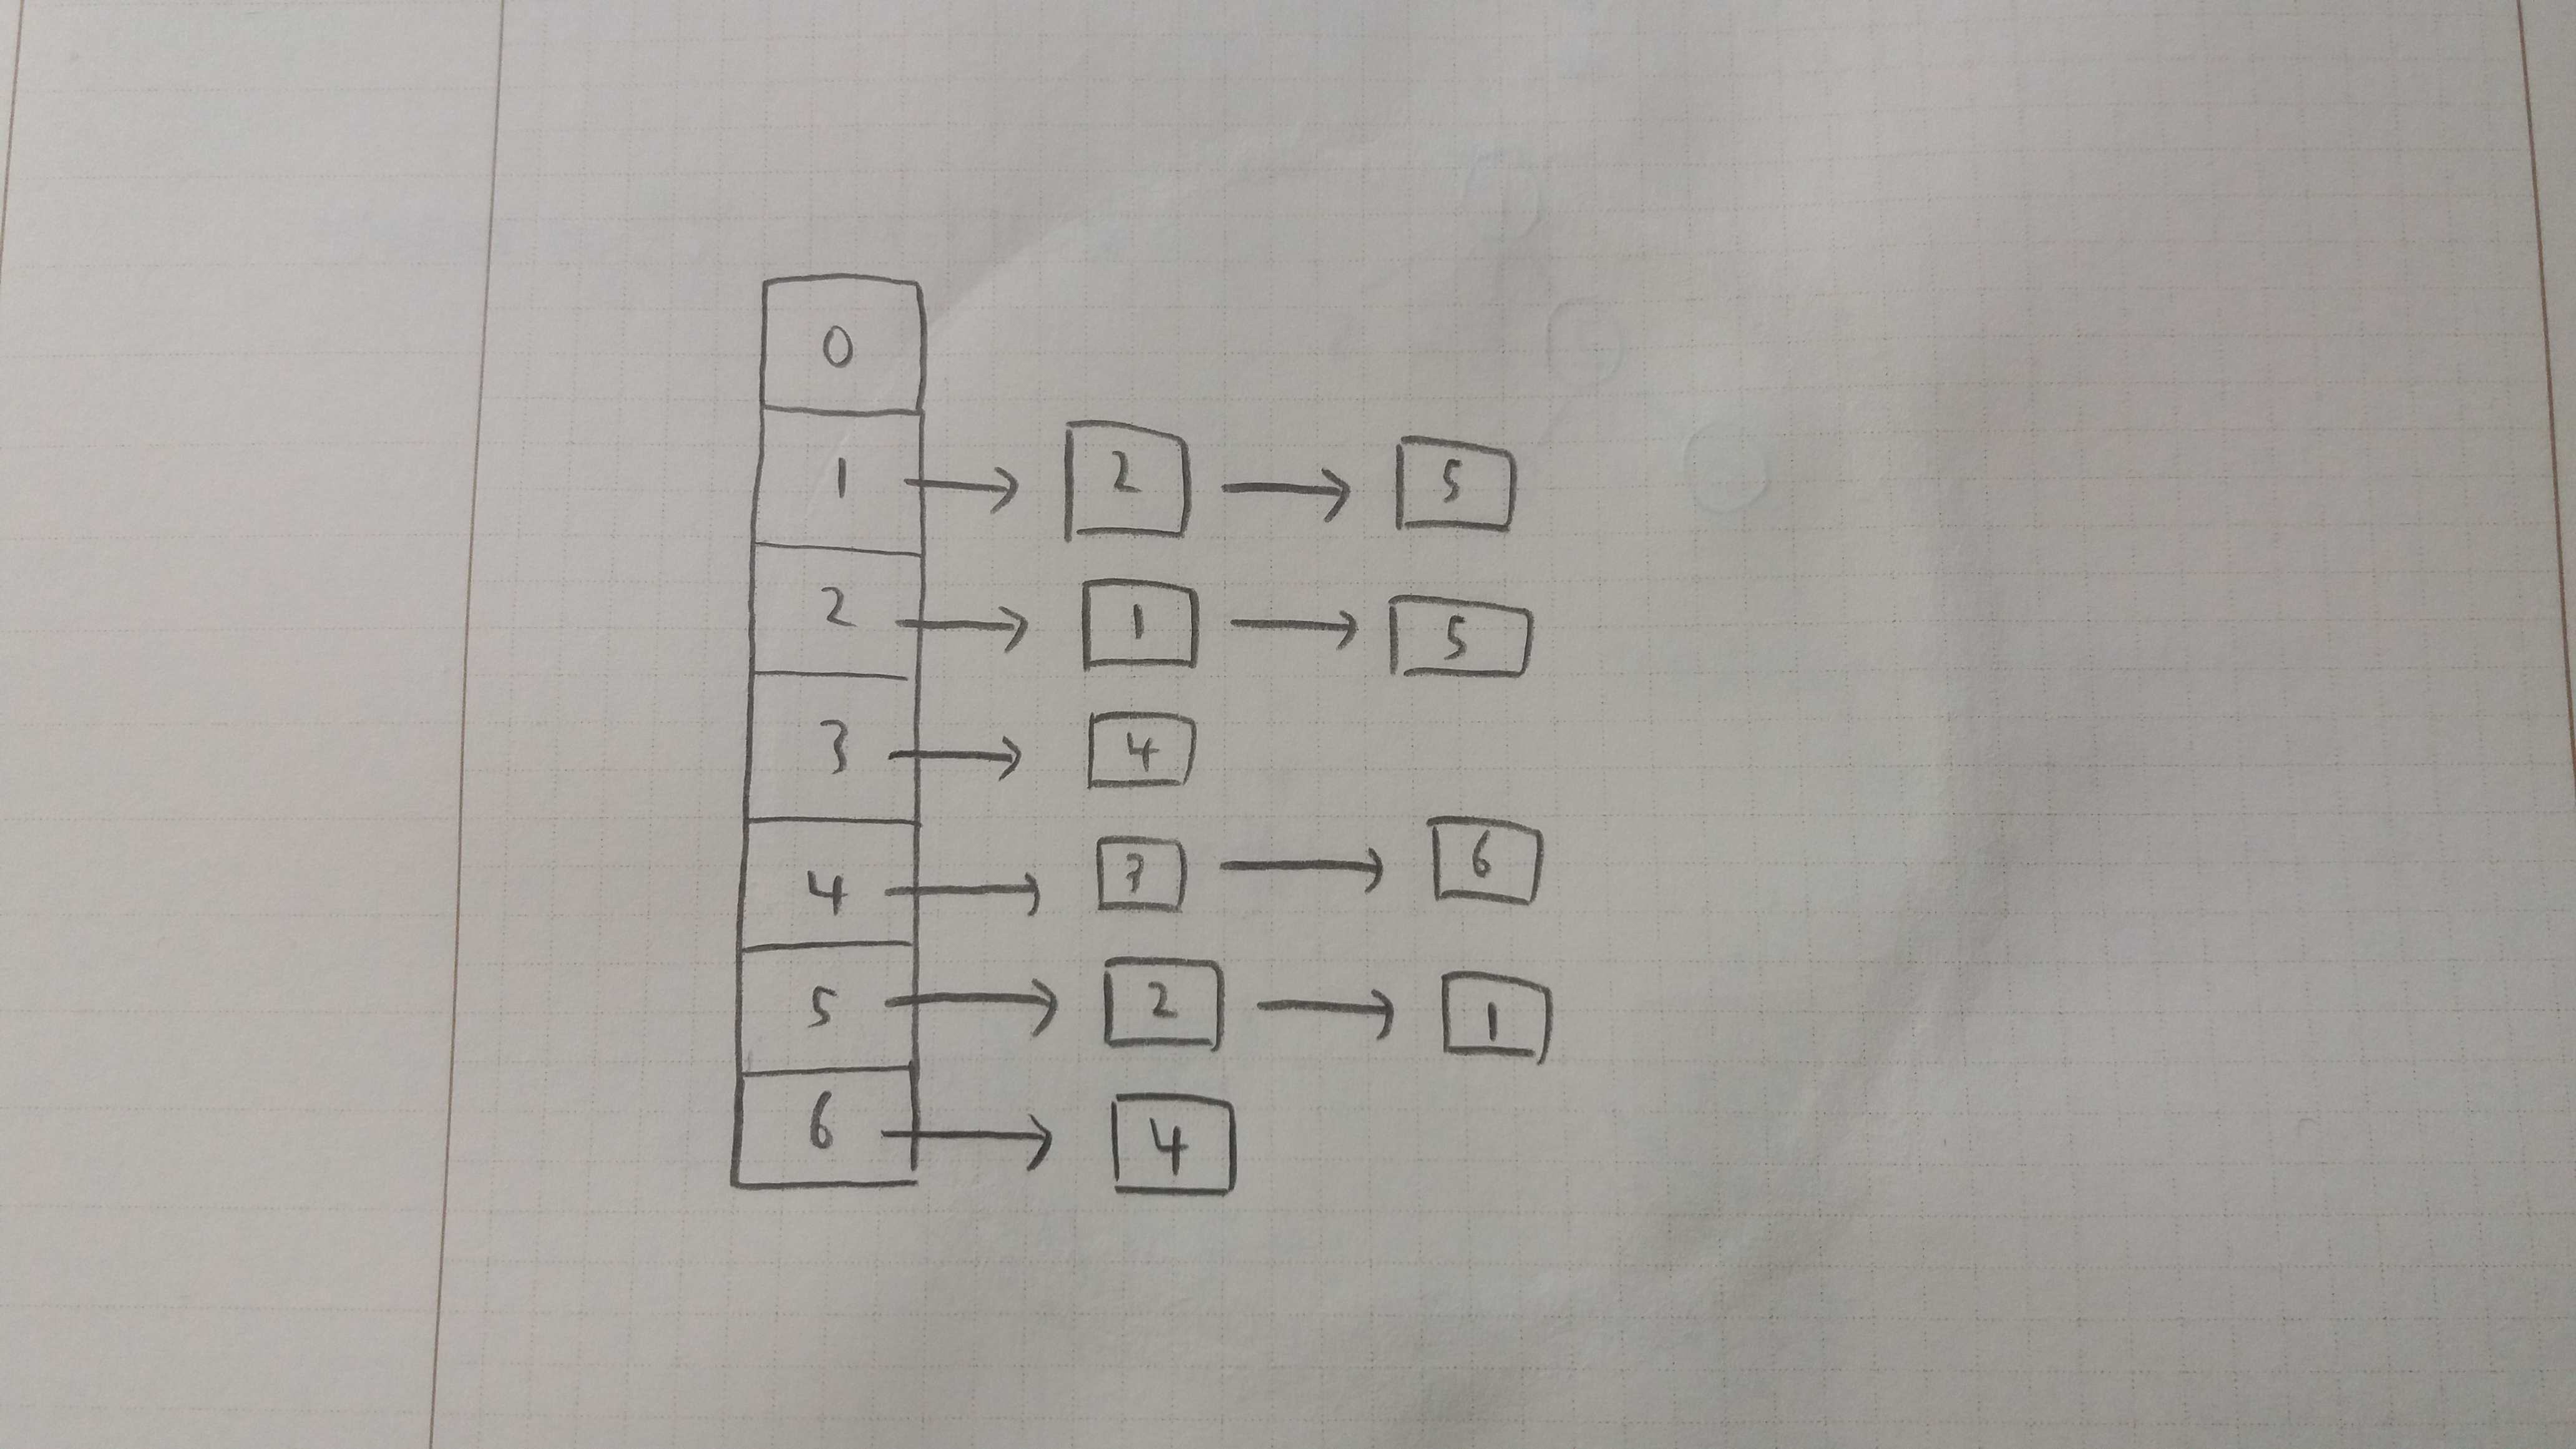 0
1 → 2 → 5
2 → 1 → 5
3 → 4
4 → 3 → 6
5 → 2 → 1
6 → 4